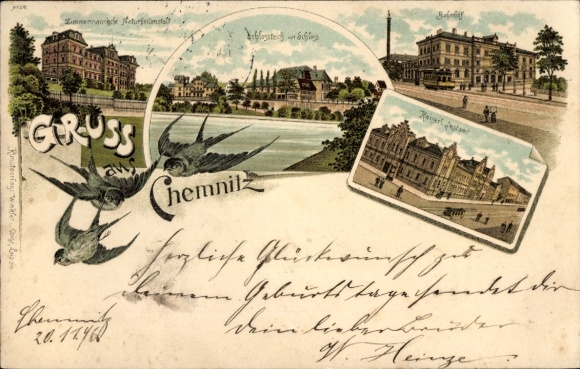 Zimmermannsche Naturheilanstalt
Schlossteich mit Schloss
Bahnhof
Kaiserl. Postamt
Gruss
aus
Chemnitz
Herzliche Glückwünsch zu
deinem Geburtstage sendet dir
dein lieber Bruder
W. Heinze.
Chemnitz
20.11.96